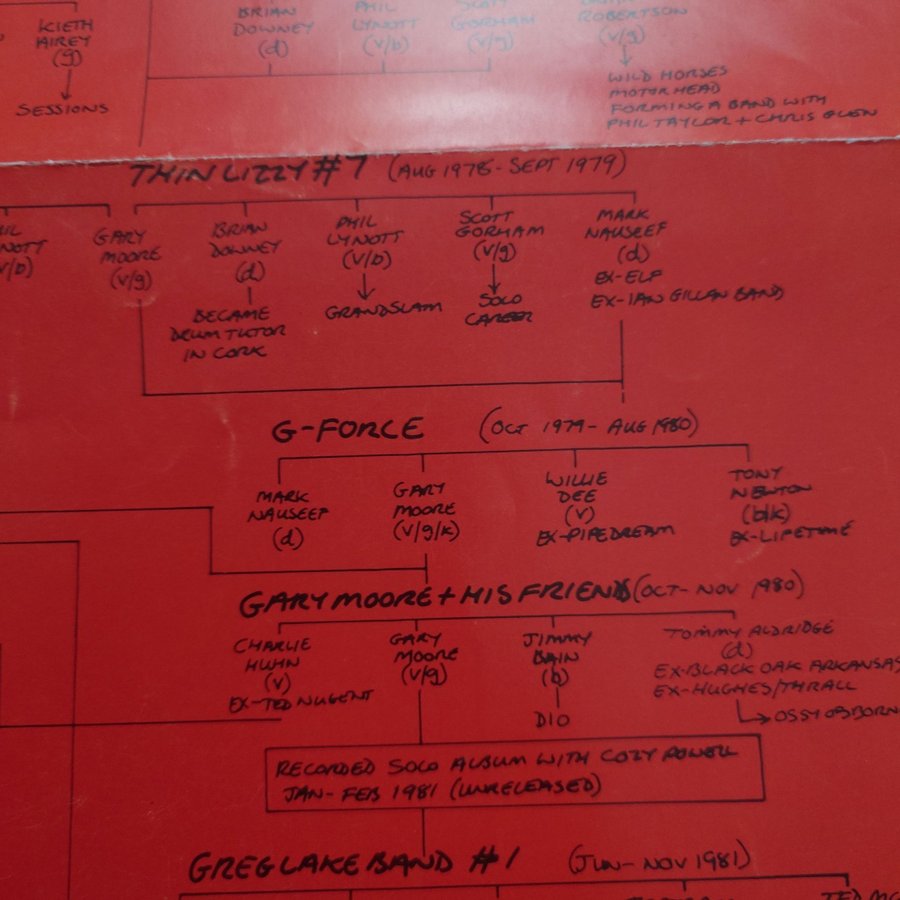 KIETH
AIREY
(g)
SESSIONS
BRIAN
DOWNEY
(d)
PHIL
LYNOTT
(v/b)
SCOTT
GORHAM
(v/g)
ROBERTSON
(v/g)
WILD HORSES
MOTORHEAD
FORMING A BAND WITH
PHIL TAYLOR + CHRIS GLEN
THIN LIZZY #7 (AUG 1978 - SEPT 1979)
(v/b)
GARY
MOORE
(v/g)
BRIAN
DOWNEY
(d)
BECAME
DRUM TUTOR
IN CORK
PHIL
LYNOTT
(v/b)
GRANDSLAM
SCOTT
GORHAM
(v/g)
SOLO
CAREER
MARK
NAUSEEF
(d)
EX-ELF
EX-IAN GILLAN BAND
G-FORCE (OCT 1979 - AUG 1980)
MARK
NAUSEEF
(d)
GARY
MOORE
(v/g/k)
WILLIE
DEE
(v)
EX-PIPEDREAM
TONY
NEWTON
(b/k)
EX-LIFETIME
GARY MOORE + HIS FRIENDS (OCT - NOV 1980)
CHARLIE
HUHN
(v)
EX-TED NUGENT
GARY
MOORE
(v/g)
JIMMY
BAIN
(b)
DIO
TOMMY ALDRIDGE
(d)
EX-BLACK OAK ARKANSAS
EX-HUGHES/THRALL
OSSY OSBORN
RECORDED SOLO ALBUM WITH COZY POWELL
JAN - FEB 1981 (UNRELEASED)
GREG LAKE BAND #1 (JUN - NOV 1981)